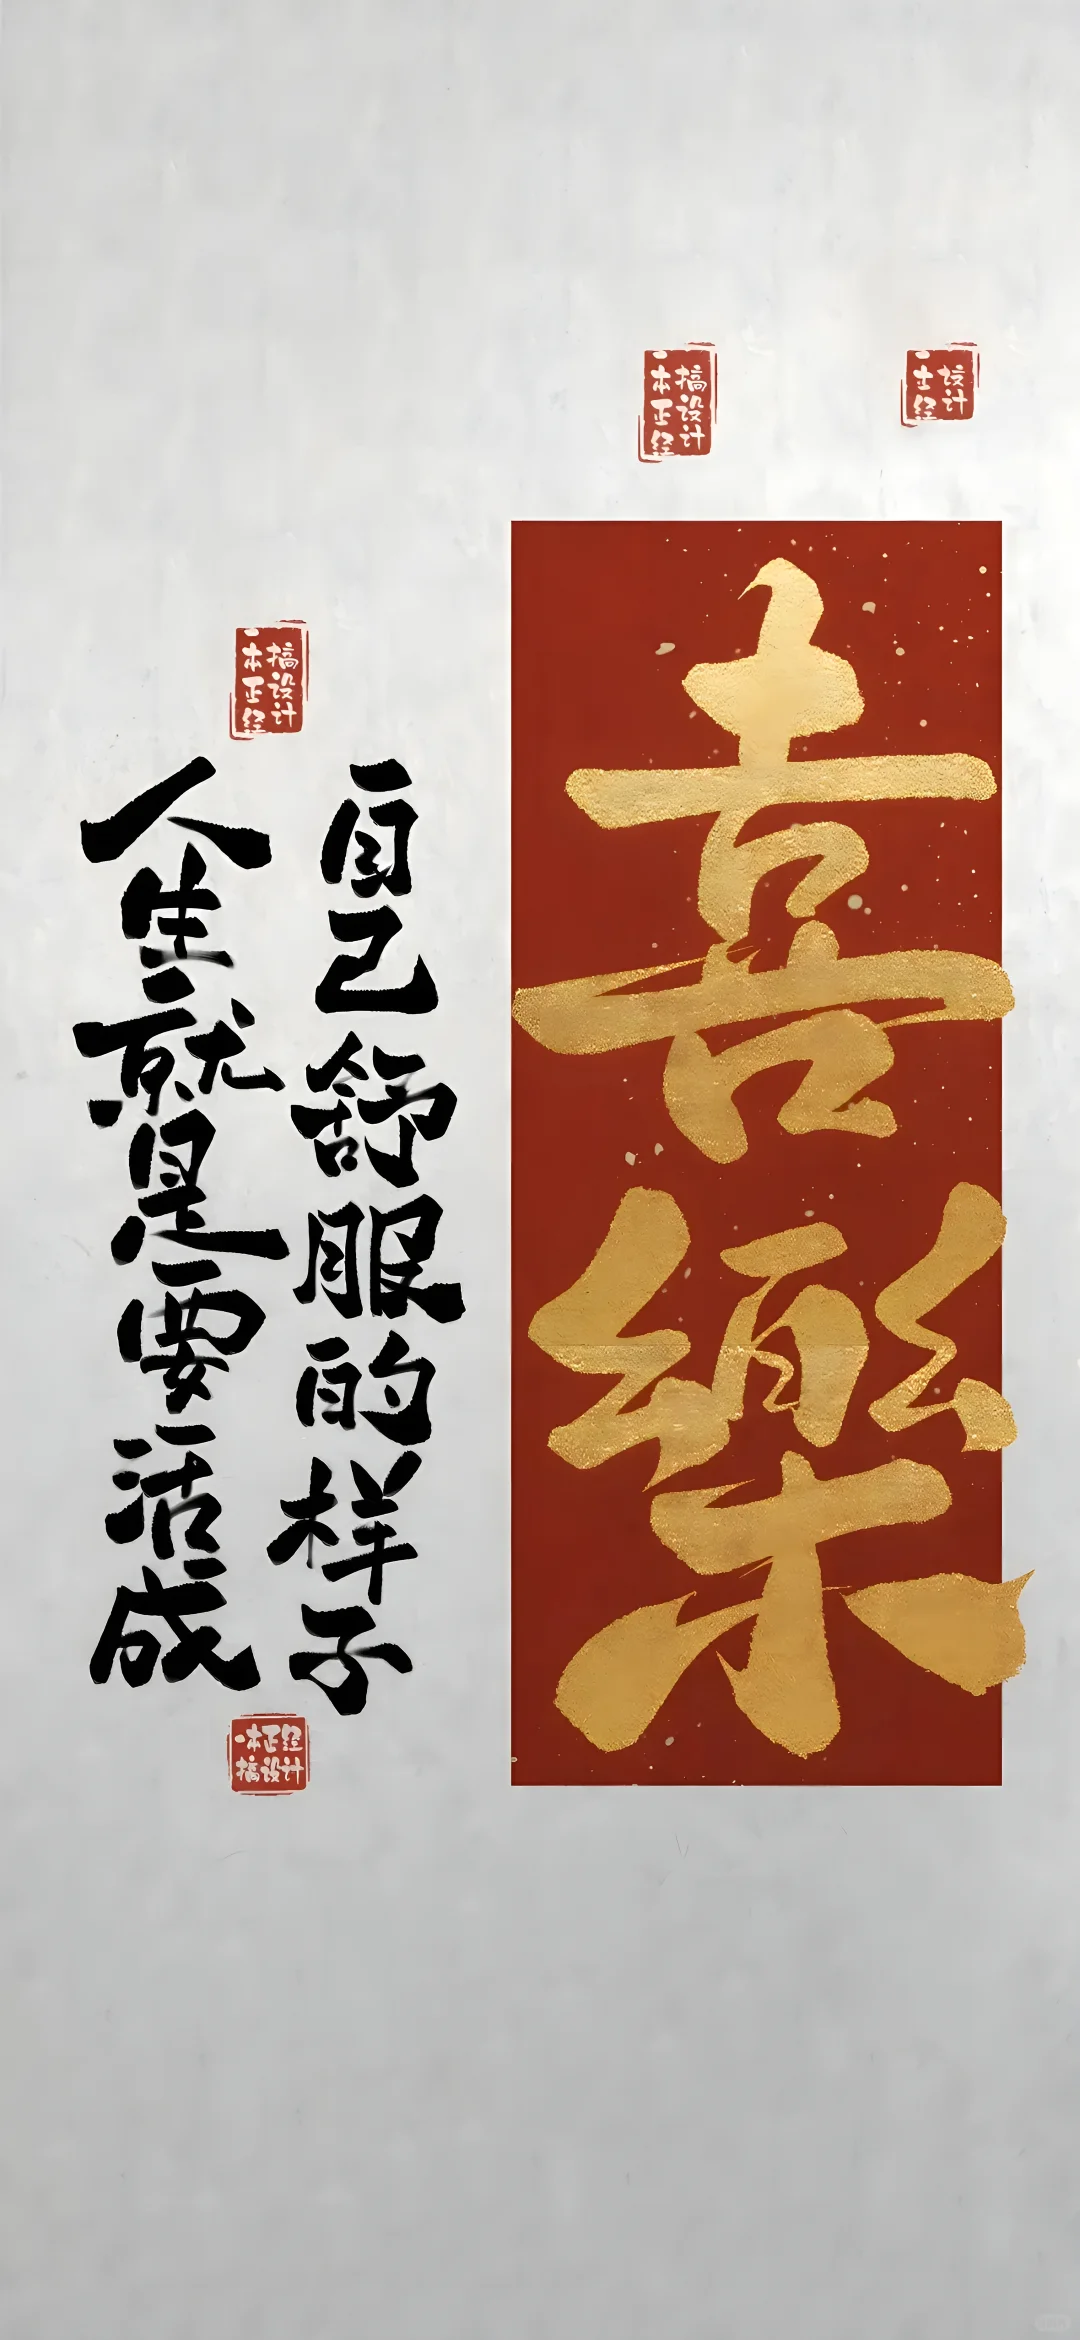 喜樂
人生就是要活成
自己舒服的样子
一本正经
搞设计
一本正经
搞设计
一本正经
搞设计